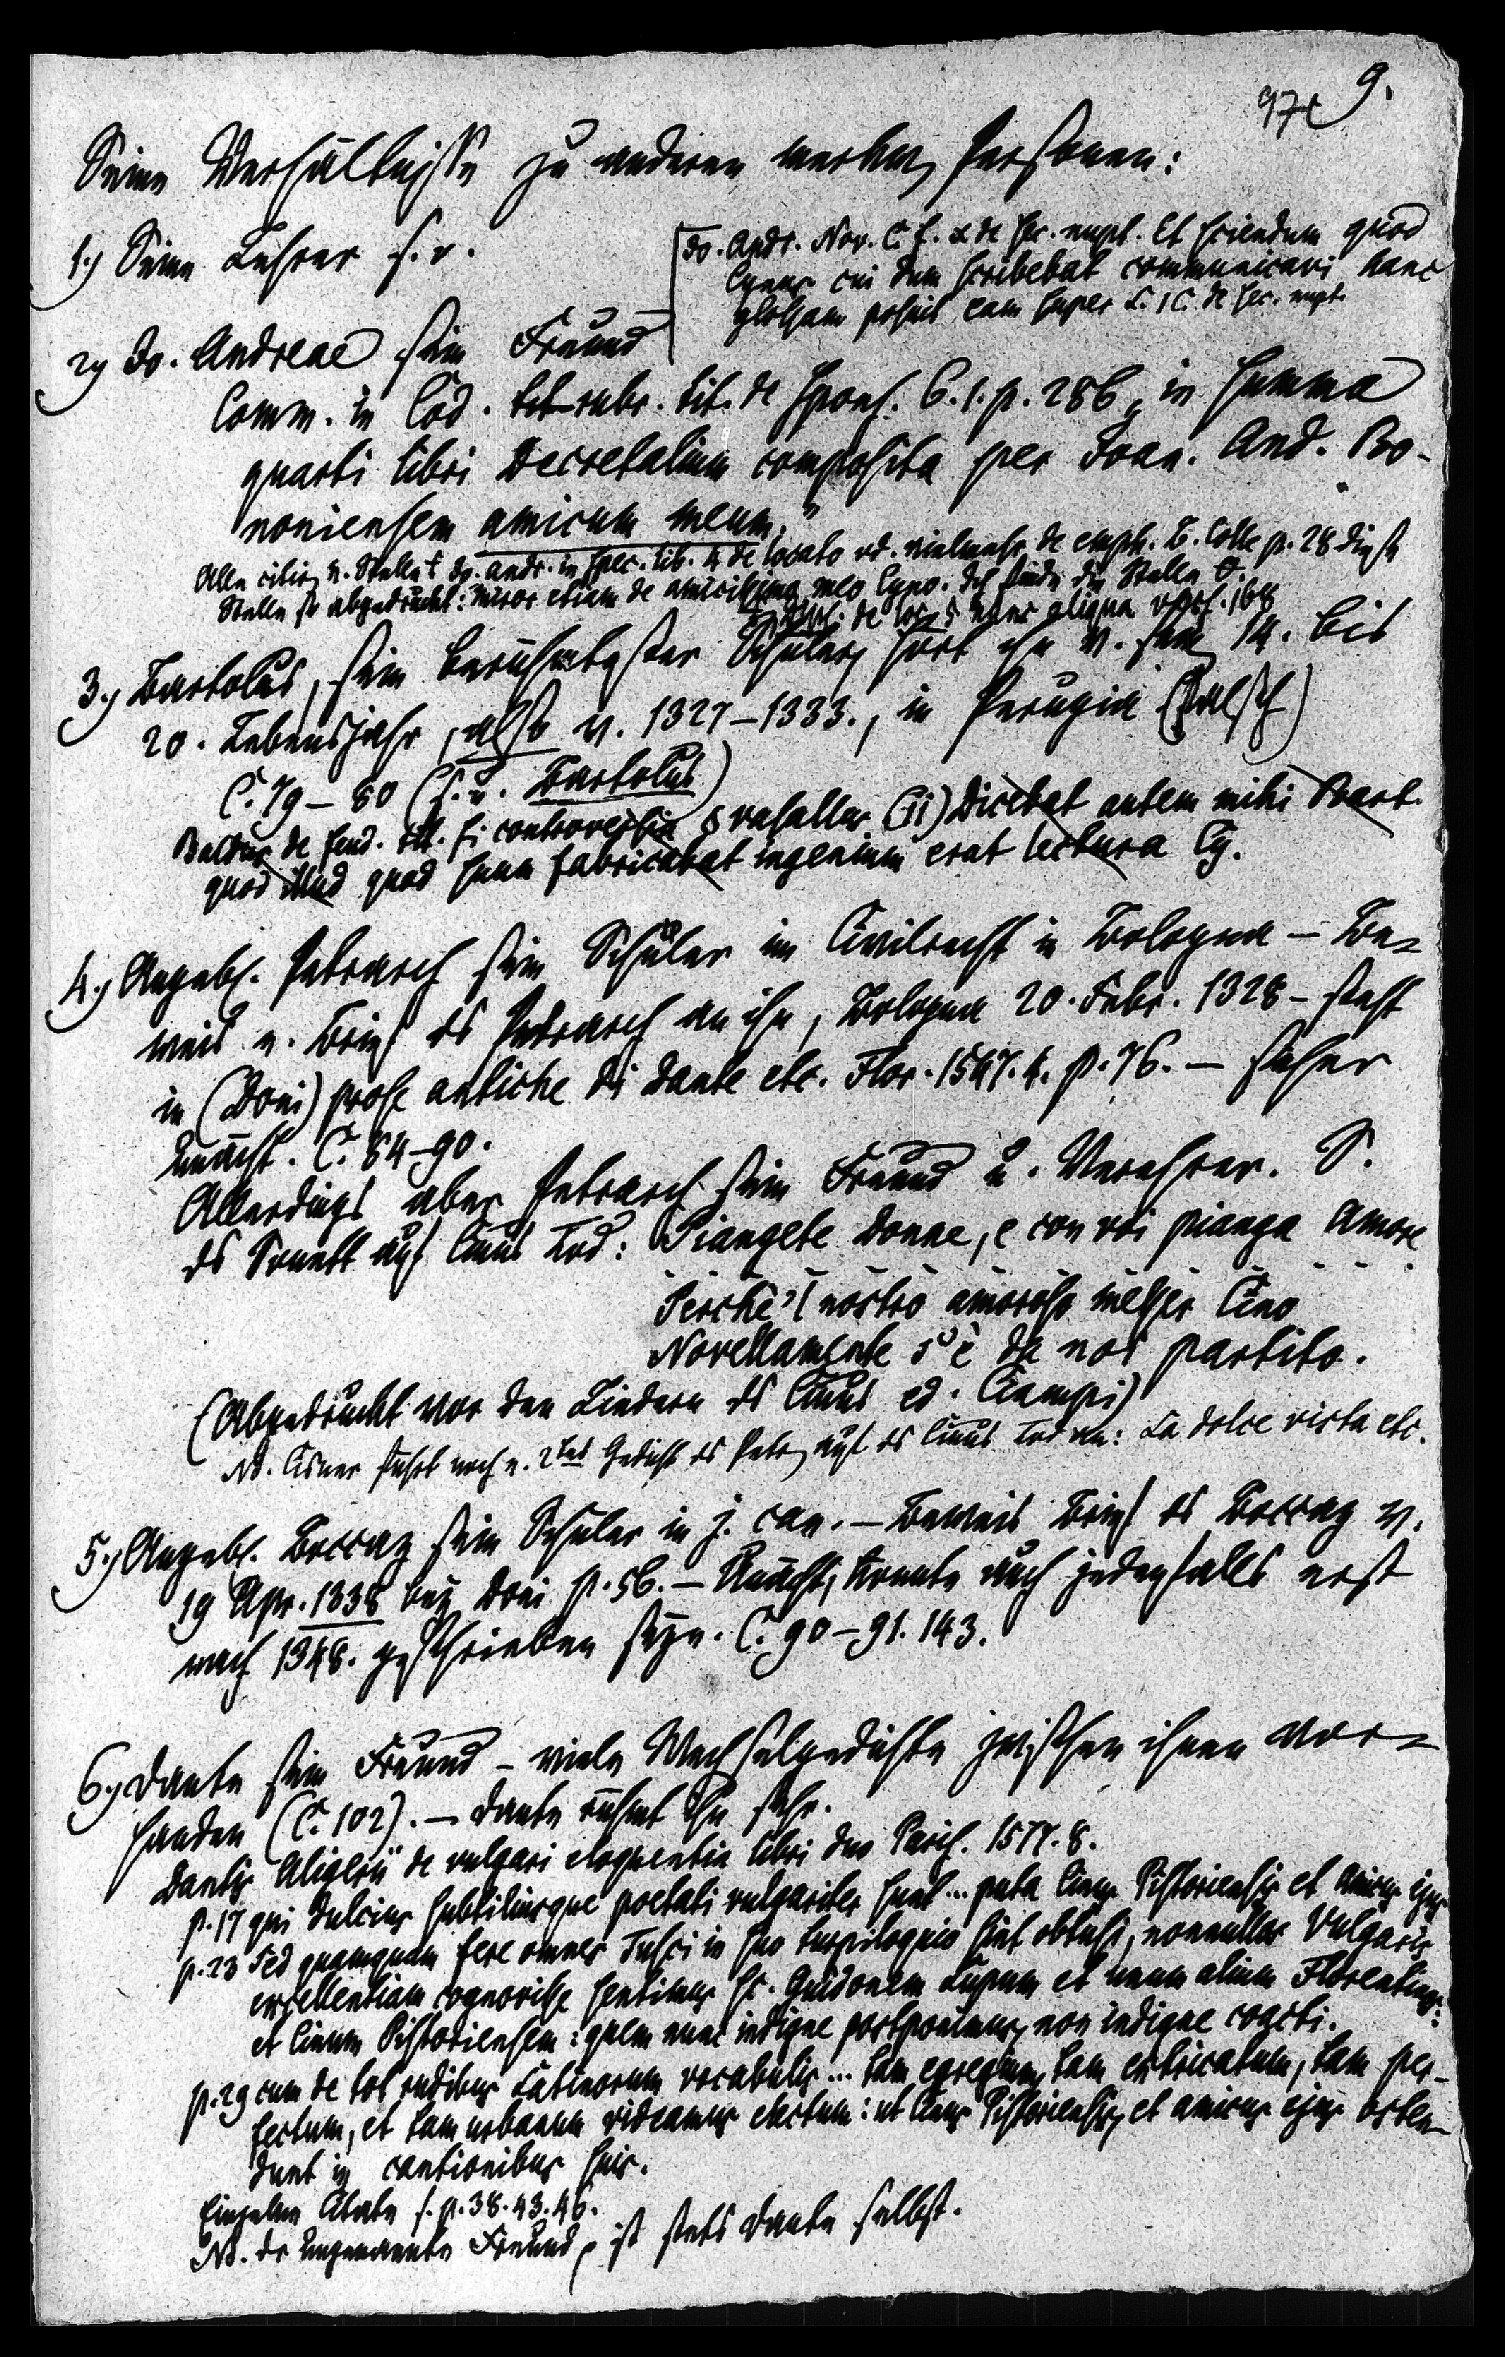 97c 9.
Seine Verhältnisse zu anderen merkw. Personen:
1.) Seine Lehrer s. o.
[Jo. Andr. Nov. C. f. x de her. empt. Et sciendum quod
Cynus cui dum scribebat communicavi hanc
glossam posuit eam super L. 1 C. de her. empt.
2.) Jo. Andreae sein Freund
Comm. in Cod. rubr. tit. de Spons. 6. 1. p. 286 „in summa
quarti libri Decretalium composita per Joan. And. Bo-
noniensem amicum meum.“
Alle citiren e. Stelle Jo. Andr. in Spec. lib. 4 de locato vielmehr de emph. p. 28 diese
Stelle so abgedruckt: miror etiam de amicissimo meo Cyno. Diß Stelle
de loc. § nunc aliqua vers. 168
3.) Bartolus, sein berühmtester Schüler, hört ihn v. sein. 14. bis
20. Lebensjahr, also v. 1327–1333., in Perugia (Falsch)
C. 79–80 (s. u. Bartolus)
Baldus de feud. tit. si controversia § vasallus (ii) Dicebat autem mihi Bart.
quod illud quod suum fabricabat ingenium erat lectura Cy.
4.) Angebl. Petrarch sein Schüler im Civilrecht in Bologna – Be-
weis e. Brief des Petrarch an ihn, Bologna 20. Febr. 1328 – steht
in (Doni) prose antiche di Dante etc. Flor. 1547. 4. p. 76. – sicher
unächt. C. 84–90.
Allerdings aber Petrarch sein Freund u. Verehrer. S.
ds Sonett auf Cinus Tod: Piangete donne, e con voi pianga Amore
. . . . . . . . .
Perche'l nostro amoroso messer Cino
Novellamente s'è da noi partito.
(Abgedruckt vor den Liedern ds Cinus ed. Ciampi)
Nb. Cisner führt noch e. 2tes Gedicht ds Petr. auf ds Cinus Tod an: La dolce vista etc.
5.) Angebl. Boccaz sein Schüler in j. can. – Beweis Brief ds Boccaz v.
19 Apr. 1338 bey Doni p. 56. – Unächt, konnte auch jedenfalls erst
nach 1348. geschrieben seyn. C. 90–91. 143.
6.) Dante sein Freund – viele Wechselgedichte zwischen ihnen vor-
handen (C. 102). – Dante rühmt ihn sehr.
Dantis Aligerii de vulgari eloquentia libri duo Paris. 1577. 8.
p. 17 qui dulcius subtiliusque poetati vulgariter sunt ... puta Cinus Pistoriensis et Amicus ejus
p. 23 Sed quamquam fere omnes Tusci in suo turpiloquio sint obtusi, nonnullos Vulgaris
excellentiam cognovisse sentimus sc. Guidonem Lupum et unum alium Florentinos:
et Cinum Pistoriensem: quem nunc indigne postponimus, non indigne coacti.
p. 29 cum de tot rudibus Latinorum vocabulis ... tam egregium, tam extricatum, tam per-
fectum, et tam urbanum videamus electum: ut Cinus Pistoriensis et amicus ejus osten-
dunt in cantionibus suis.
Einzelne Citate s. p. 38. 43. 46.
Nb. der ungenannte Freund, ist stets Dante selbst.